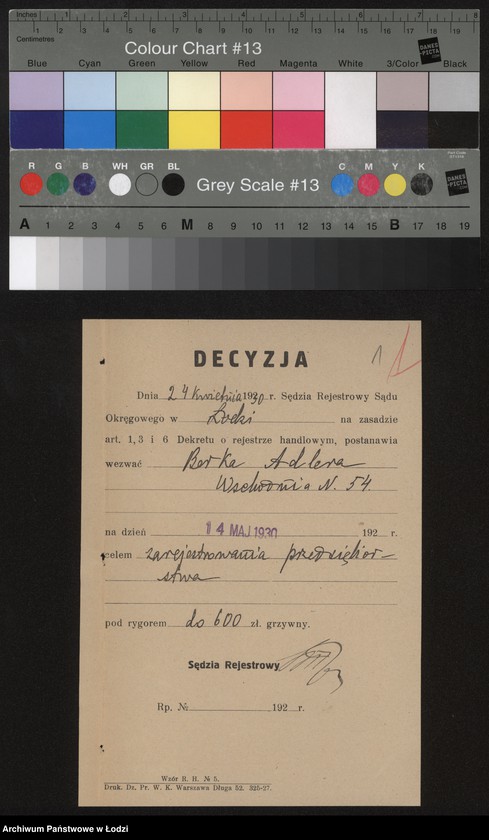 Inches 1 2 3 4 5 6 7 8
Centimetres 1 2 3 4 5 6 7 8 9 10 11 12 13 14 15 16 17 18 19
Colour Chart #13
DANES-PICTA
Blue Cyan Green Yellow Red Magenta White 3/Color Black
R G B WH GR BL Grey Scale #13 C M Y K
DANES-PICTA
A 1 2 3 4 5 6 M 8 9 10 11 12 13 14 15 B 17 18 19
DECYZJA
1 1
Dnia 24 kwietnia 1930 r. Sędzia Rejestrowy Sądu
Okręgowego w Łodzi na zasadzie
art. 1, 3 i 6 Dekretu o rejestrze handlowym, postanawia
wezwać Berka Adlera
Wschodnia N. 54.
na dzień 14 MAJ 1930 192 r.
celem zarejestrowania przedsiębior-
stwa
pod rygorem do 600 zł. grzywny.
Sędzia Rejestrowy
Rp. № 192 r.
Wzór R. H. № 5.
Druk. Dz. Pr. W. K. Warszawa Długa 52. 325-27.
Archiwum Państwowe w Łodzi